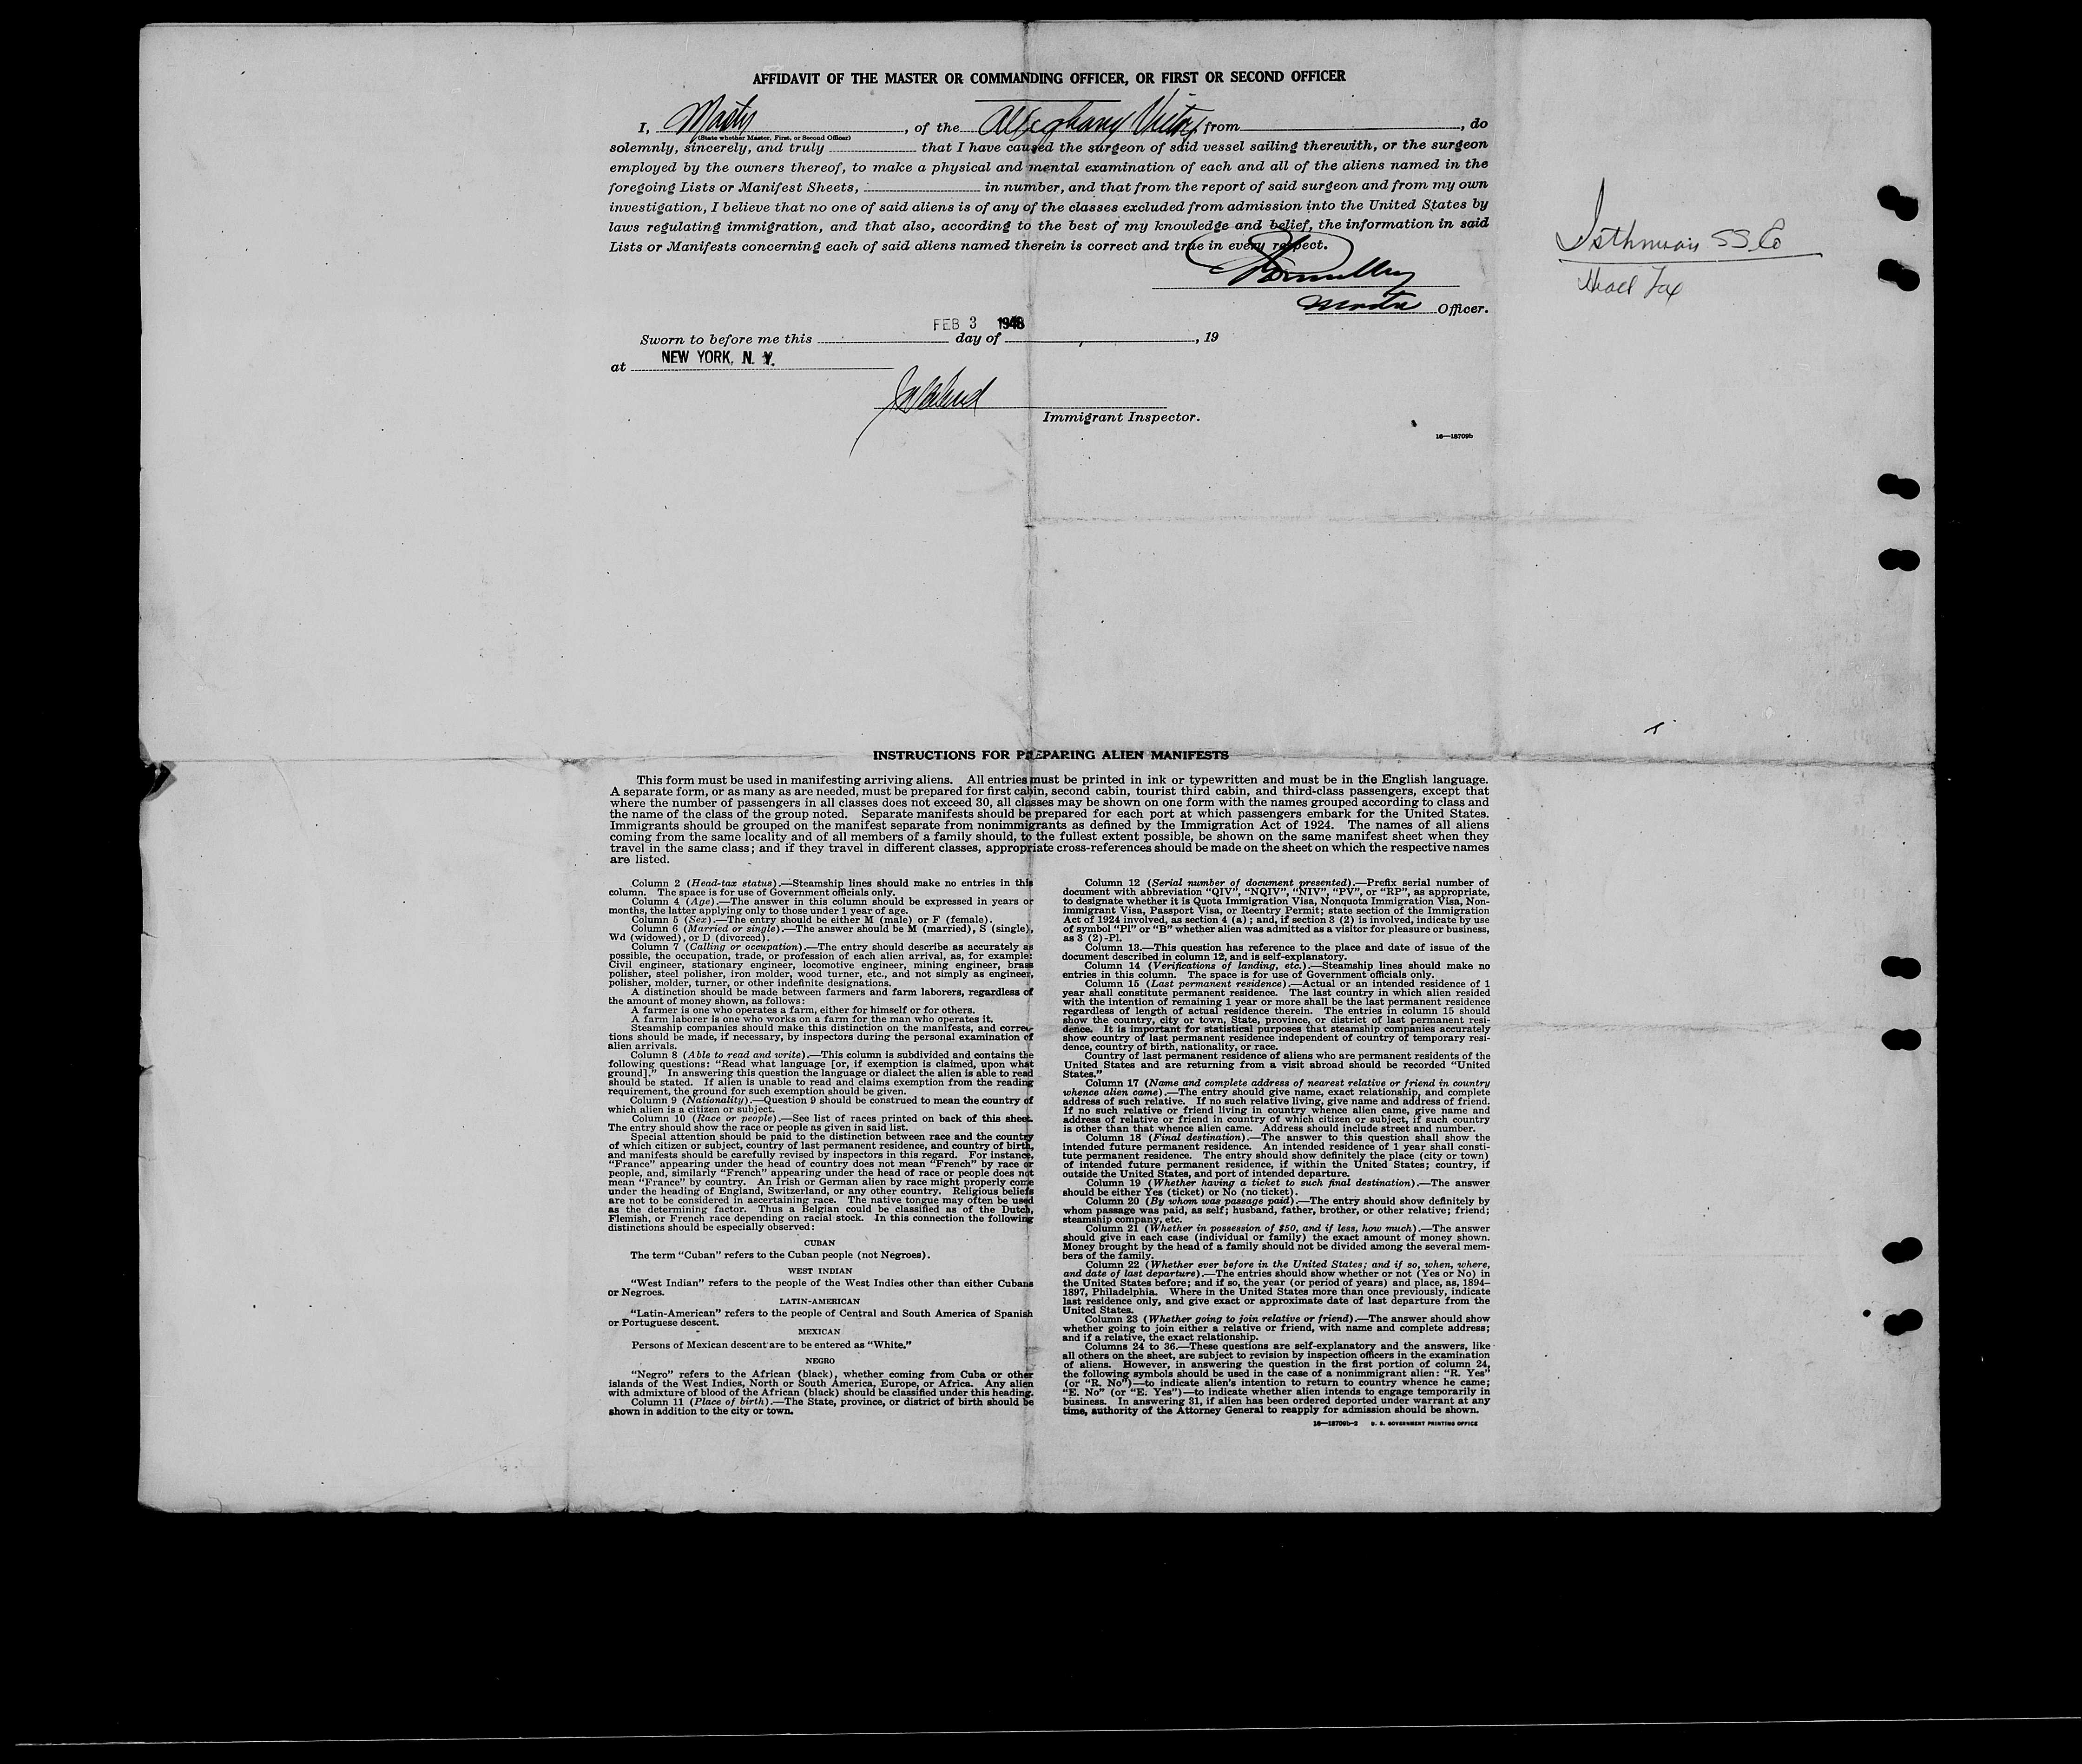 AFFIDAVIT OF THE MASTER OR COMMANDING OFFICER, OR FIRST OR SECOND OFFICER
I, Master, of the Alleghany Victory from, do
(State whether Master, First, or Second Officer)
solemnly, sincerely, and truly that I have caused the surgeon of said vessel sailing therewith, or the surgeon
employed by the owners thereof, to make a physical and mental examination of each and all of the aliens named in the
foregoing Lists or Manifest Sheets, in number, and that from the report of said surgeon and from my own
investigation, I believe that no one of said aliens is of any of the classes excluded from admission into the United States by
laws regulating immigration, and that also, according to the best of my knowledge and belief, the information in said
Lists or Manifests concerning each of said aliens named therein is correct and true in every respect.
Master Officer.
FEB 3 1948
Sworn to before me this day of , 19
at NEW YORK, N. Y.
Immigrant Inspector.
16—18709b
Isthmian SS Co
Head Tax
INSTRUCTIONS FOR PREPARING ALIEN MANIFESTS
This form must be used in manifesting arriving aliens. All entries must be printed in ink or typewritten and must be in the English language.
A separate form, or as many as are needed, must be prepared for first cabin, second cabin, tourist third cabin, and third-class passengers, except that
where the number of passengers in all classes does not exceed 30, all classes may be shown on one form with the names grouped according to class and
the name of the class of the group noted. Separate manifests should be prepared for each port at which passengers embark for the United States.
Immigrants should be grouped on the manifest separate from nonimmigrants as defined by the Immigration Act of 1924. The names of all aliens
coming from the same locality and of all members of a family should, to the fullest extent possible, be shown on the same manifest sheet when they
travel in the same class; and if they travel in different classes, appropriate cross-references should be made on the sheet on which the respective names
are listed.
Column 2 (Head-tax status).—Steamship lines should make no entries in this
column. The space is for use of Government officials only.
Column 4 (Age).—The answer in this column should be expressed in years or
months, the latter applying only to those under 1 year of age.
Column 5 (Sex).—The entry should be either M (male) or F (female).
Column 6 (Married or single).—The answer should be M (married), S (single),
Wd (widowed), or D (divorced).
Column 7 (Calling or occupation).—The entry should describe as accurately as
possible, the occupation, trade, or profession of each alien arrival, as, for example:
Civil engineer, stationary engineer, locomotive engineer, mining engineer, brass
polisher, steel polisher, iron molder, wood turner, etc., and not simply as engineer,
polisher, molder, turner, or other indefinite designations.
A distinction should be made between farmers and farm laborers, regardless of
the amount of money shown, as follows:
A farmer is one who operates a farm, either for himself or for others.
A farm laborer is one who works on a farm for the man who operates it.
Steamship companies should make this distinction on the manifests, and correc-
tions should be made, if necessary, by inspectors during the personal examination of
alien arrivals.
Column 8 (Able to read and write).—This column is subdivided and contains the
following questions: "Read what language [or, if exemption is claimed, upon what
ground]." In answering this question the language or dialect the alien is able to read
should be stated. If alien is unable to read and claims exemption from the reading
requirement, the ground for such exemption should be given.
Column 9 (Nationality).—Question 9 should be construed to mean the country of
which alien is a citizen or subject.
Column 10 (Race or people).—See list of races printed on back of this sheet.
The entry should show the race or people as given in said list.
Special attention should be paid to the distinction between race and the country
of which citizen or subject, country of last permanent residence, and country of birth,
and manifests should be carefully revised by inspectors in this regard. For instance,
"France" appearing under the head of country does not mean "French" by race or
people, and, similarly "French" appearing under the head of race or people does not
mean "France" by country. An Irish or German alien by race might properly come
under the heading of England, Switzerland, or any other country. Religious beliefs
are not to be considered in ascertaining race. The native tongue may often be used
as the determining factor. Thus a Belgian could be classified as of the Dutch,
Flemish, or French race depending on racial stock. In this connection the following
distinctions should be especially observed:
CUBAN
The term "Cuban" refers to the Cuban people (not Negroes).
WEST INDIAN
"West Indian" refers to the people of the West Indies other than either Cubans
or Negroes.
LATIN-AMERICAN
"Latin-American" refers to the people of Central and South America of Spanish
or Portuguese descent.
MEXICAN
Persons of Mexican descent are to be entered as "White."
NEGRO
"Negro" refers to the African (black), whether coming from Cuba or other
islands of the West Indies, North or South America, Europe, or Africa. Any alien
with admixture of blood of the African (black) should be classified under this heading.
Column 11 (Place of birth).—The State, province, or district of birth should be
shown in addition to the city or town.
Column 12 (Serial number of document presented).—Prefix serial number of
document with abbreviation "QIV", "NQIV", "NIV", "PV", or "RP", as appropriate,
to designate whether it is Quota Immigration Visa, Nonquota Immigration Visa, Non-
immigrant Visa, Passport Visa, or Reentry Permit; state section of the Immigration
Act of 1924 involved, as section 4 (a); and, if section 3 (2) is involved, indicate by use
of symbol "Pl" or "B" whether alien was admitted as a visitor for pleasure or business,
as 3 (2)-Pl.
Column 13.—This question has reference to the place and date of issue of the
document described in column 12, and is self-explanatory.
Column 14 (Verifications of landing, etc.).—Steamship lines should make no
entries in this column. The space is for use of Government officials only.
Column 15 (Last permanent residence).—Actual or an intended residence of 1
year shall constitute permanent residence. The last country in which alien resided
with the intention of remaining 1 year or more shall be the last permanent residence
regardless of length of actual residence therein. The entries in column 15 should
show the country, city or town, State, province, or district of last permanent resi-
dence. It is important for statistical purposes that steamship companies accurately
show country of last permanent residence independent of country of temporary resi-
dence, country of birth, nationality, or race.
Country of last permanent residence of aliens who are permanent residents of the
United States and are returning from a visit abroad should be recorded "United
States."
Column 17 (Name and complete address of nearest relative or friend in country
whence alien came).—The entry should give name, exact relationship, and complete
address of such relative. If no such relative living, give name and address of friend.
If no such relative or friend living in country whence alien came, give name and
address of relative or friend in country of which citizen or subject, if such country
is other than that whence alien came. Address should include street and number.
Column 18 (Final destination).—The answer to this question shall show the
intended future permanent residence. An intended residence of 1 year shall consti-
tute permanent residence. The entry should show definitely the place (city or town)
of intended future permanent residence, if within the United States; country, if
outside the United States, and port of intended departure.
Column 19 (Whether having a ticket to such final destination).—The answer
should be either Yes (ticket) or No (no ticket).
Column 20 (By whom was passage paid).—The entry should show definitely by
whom passage was paid, as self; husband, father, brother, or other relative; friend;
steamship company, etc.
Column 21 (Whether in possession of $50, and if less, how much).—The answer
should give in each case (individual or family) the exact amount of money shown.
Money brought by the head of a family should not be divided among the several mem-
bers of the family.
Column 22 (Whether ever before in the United States; and if so, when, where,
and date of last departure).—The entries should show whether or not (Yes or No) in
the United States before; and if so, the year (or period of years) and place, as, 1894–
1897, Philadelphia. Where in the United States more than once previously, indicate
last residence only, and give exact or approximate date of last departure from the
United States.
Column 23 (Whether going to join relative or friend).—The answer should show
whether going to join either a relative or friend, with name and complete address;
and if a relative, the exact relationship.
Columns 24 to 36.—These questions are self-explanatory and the answers, like
all others on the sheet, are subject to revision by inspection officers in the examination
of aliens. However, in answering the question in the first portion of column 24,
the following symbols should be used in the case of a nonimmigrant alien: "R. Yes"
(or "R. No")—to indicate alien's intention to return to country whence he came;
"E. No" (or "E. Yes")—to indicate whether alien intends to engage temporarily in
business. In answering 31, if alien has been ordered deported under warrant at any
time, authority of the Attorney General to reapply for admission should be shown.
16—18709b-2 U. S. GOVERNMENT PRINTING OFFICE